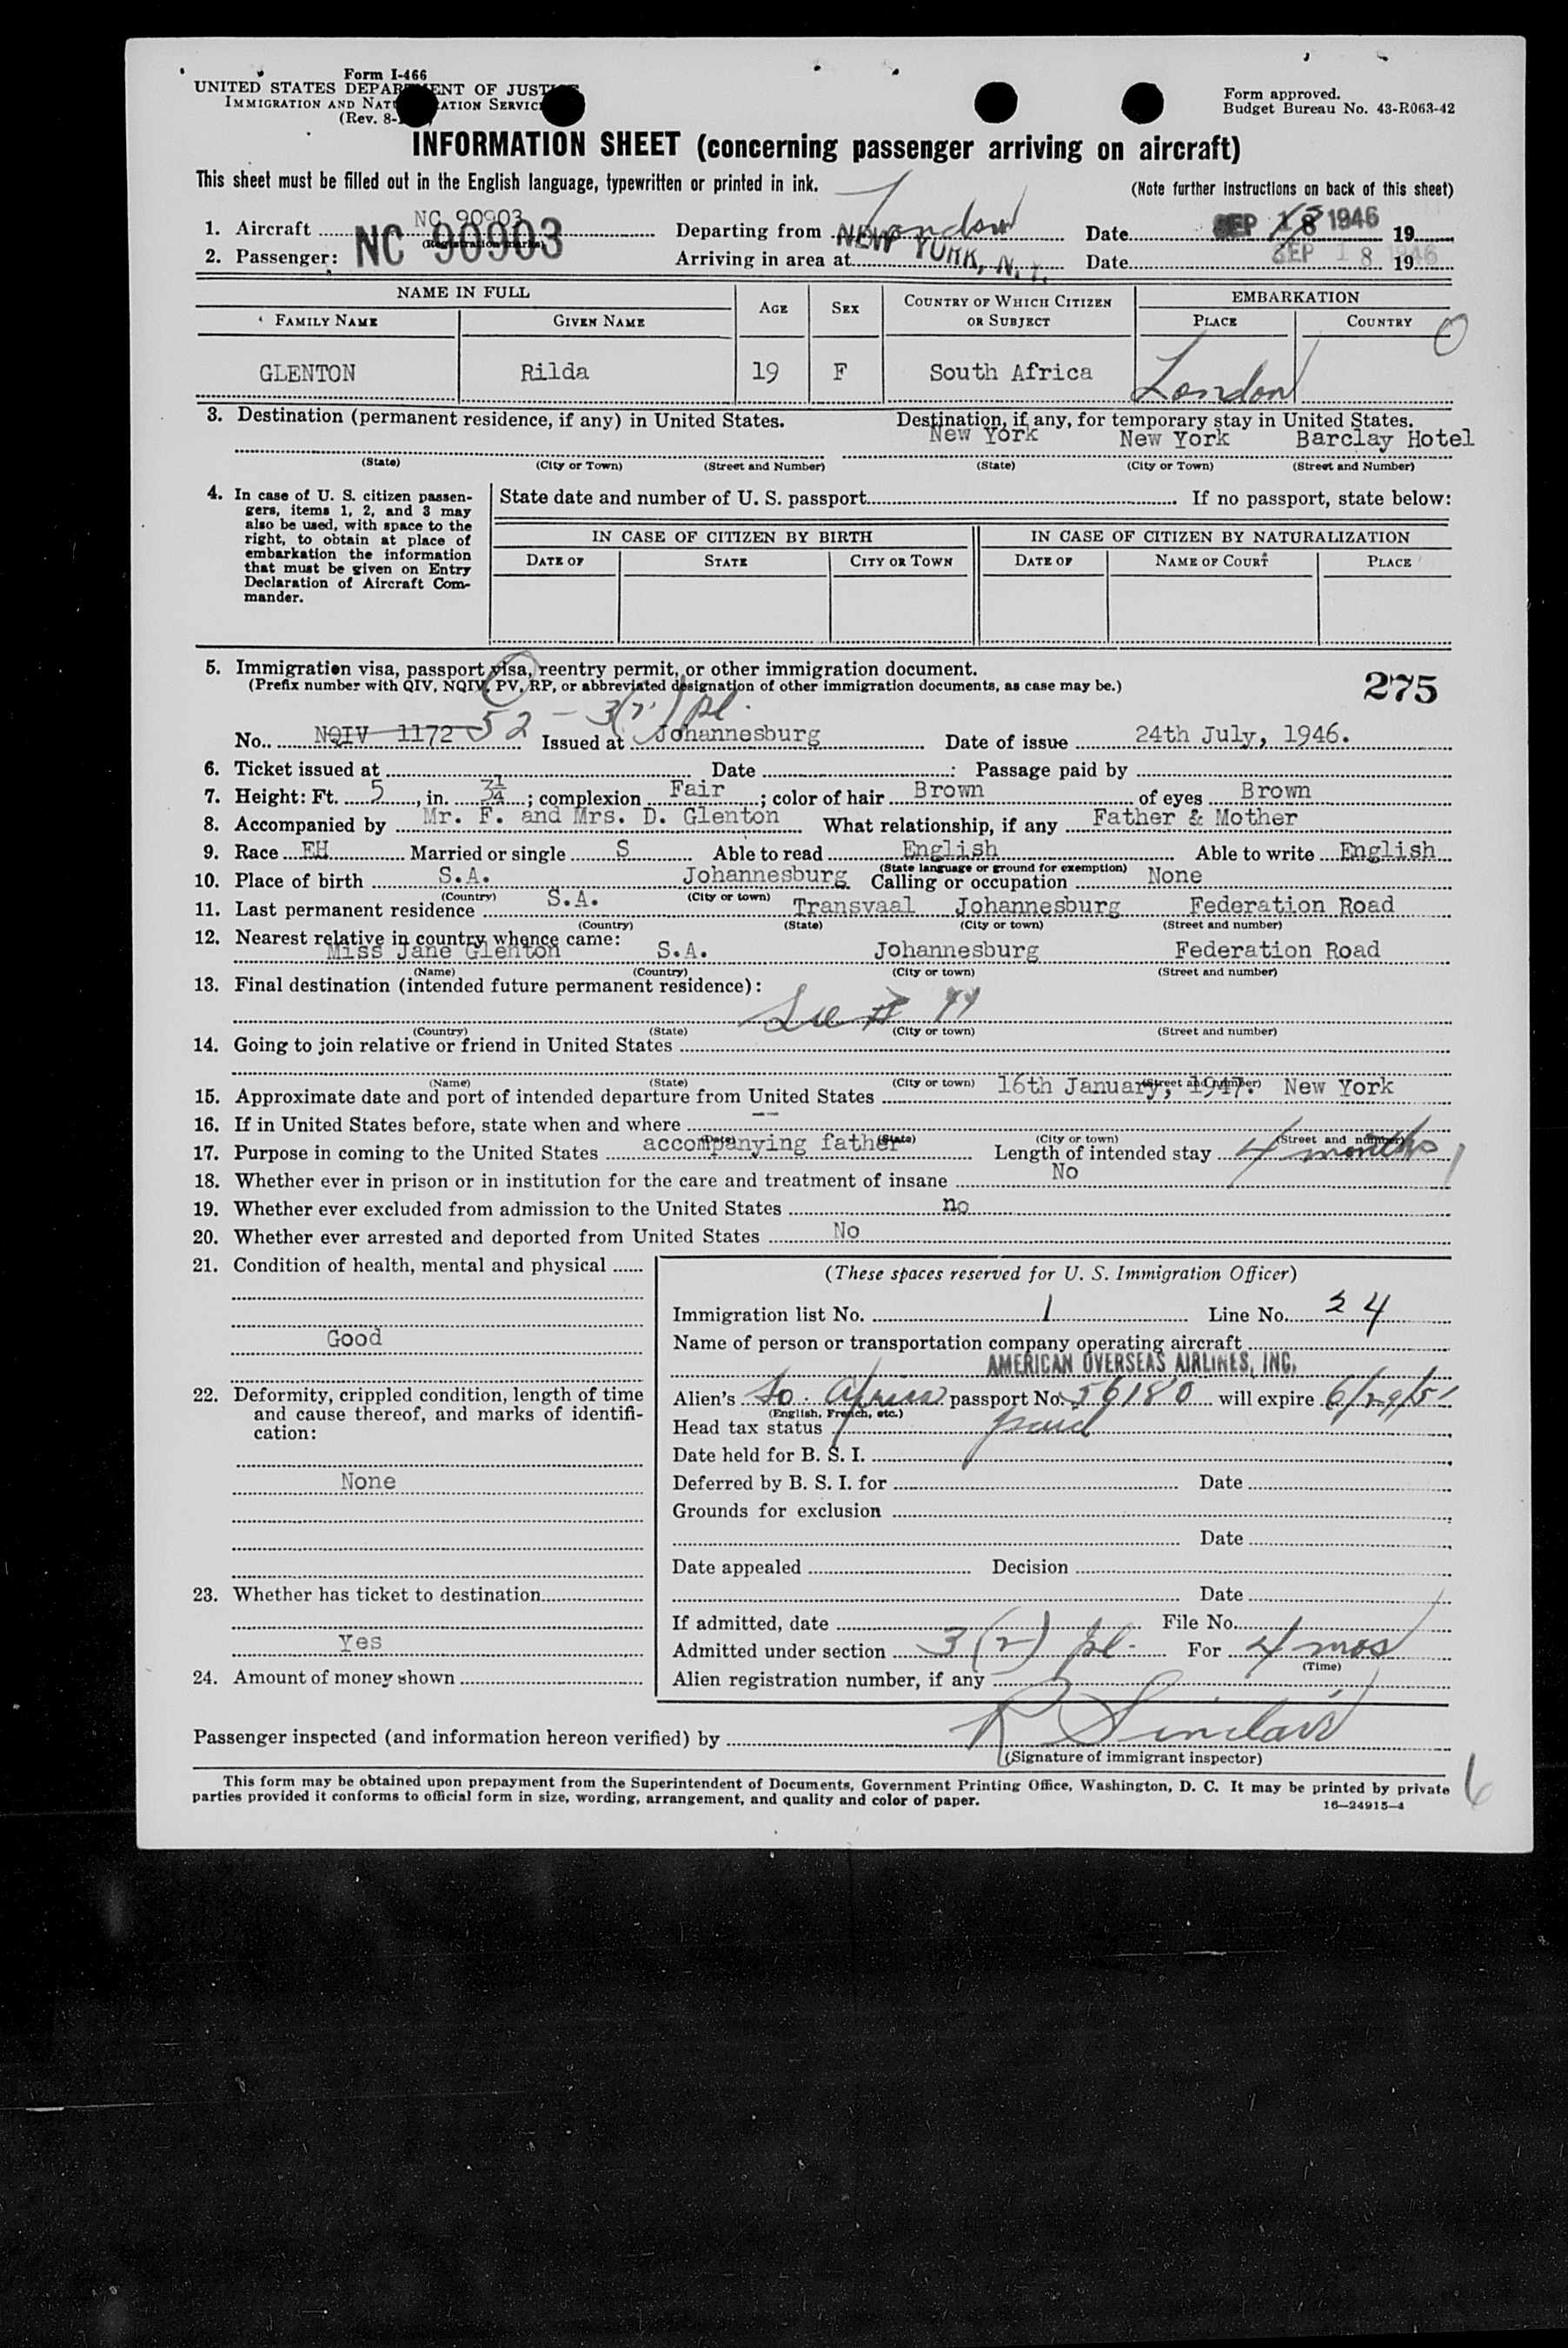 Form I-466
UNITED STATES DEPARTMENT OF JUSTICE
IMMIGRATION AND NATURALIZATION SERVICE
(Rev. 8-
Form approved.
Budget Bureau No. 43-R063-42
INFORMATION SHEET (concerning passenger arriving on aircraft)
This sheet must be filled out in the English language, typewritten or printed in ink.
(Note further instructions on back of this sheet)
1. Aircraft NC 90903 NC 90903 (Registration marks) Departing from London Date SEP 18 1946 19
2. Passenger: Arriving in area at NEW YORK, N. Y. Date SEP 18 1946 19
NAME IN FULL AGE SEX COUNTRY OF WHICH CITIZEN OR SUBJECT EMBARKATION
FAMILY NAME GIVEN NAME PLACE COUNTRY
GLENTON Rilda 19 F South Africa London
3. Destination (permanent residence, if any) in United States. Destination, if any, for temporary stay in United States.
New York New York Barclay Hotel
(State) (City or Town) (Street and Number) (State) (City or Town) (Street and Number)
4. In case of U. S. citizen passengers, items 1, 2, and 3 may also be used, with space to the right, to obtain at place of embarkation the information that must be given on Entry Declaration of Aircraft Commander.
State date and number of U. S. passport If no passport, state below:
IN CASE OF CITIZEN BY BIRTH IN CASE OF CITIZEN BY NATURALIZATION
DATE OF STATE CITY OR TOWN DATE OF NAME OF COURT PLACE
5. Immigration visa, passport visa, reentry permit, or other immigration document.
(Prefix number with QIV, NQIV, PV, RP, or abbreviated designation of other immigration documents, as case may be.)
275
52 - 3(2) pl.
No. NQIV 1172 Issued at Johannesburg Date of issue 24th July, 1946.
6. Ticket issued at Date : Passage paid by
7. Height: Ft. 5, in. 3¼; complexion Fair; color of hair Brown of eyes Brown
8. Accompanied by Mr. F. and Mrs. D. Glenton What relationship, if any Father & Mother
9. Race EH Married or single S Able to read English Able to write English
(State language or ground for exemption)
10. Place of birth S.A. Johannesburg Calling or occupation None
(Country) (City or town)
11. Last permanent residence S.A. Transvaal Johannesburg Federation Road
(Country) (State) (City or town) (Street and number)
12. Nearest relative in country whence came:
Miss Jane Glenton S.A. Johannesburg Federation Road
(Name) (Country) (City or town) (Street and number)
13. Final destination (intended future permanent residence):
(Country) (State) (City or town) (Street and number)
14. Going to join relative or friend in United States
(Name) (State) (City or town) (Street and number)
15. Approximate date and port of intended departure from United States 16th January, 1947. New York
16. If in United States before, state when and where --
(Date) (State) (City or town) (Street and number)
17. Purpose in coming to the United States accompanying father Length of intended stay 4 months
18. Whether ever in prison or in institution for the care and treatment of insane No
19. Whether ever excluded from admission to the United States no
20. Whether ever arrested and deported from United States No
21. Condition of health, mental and physical
Good
22. Deformity, crippled condition, length of time and cause thereof, and marks of identification:
None
23. Whether has ticket to destination
Yes
24. Amount of money shown
(These spaces reserved for U. S. Immigration Officer)
Immigration list No. 1 Line No. 24
Name of person or transportation company operating aircraft
AMERICAN OVERSEAS AIRLINES, INC.
Alien's So. Africa passport No. 56180 will expire 6/29/51
(English, French, etc.)
Head tax status paid
Date held for B. S. I.
Deferred by B. S. I. for Date
Grounds for exclusion
Date
Date appealed Decision
Date
If admitted, date File No.
Admitted under section 3(2) pl. For 4 mos
(Time)
Alien registration number, if any
Passenger inspected (and information hereon verified) by R Sinclair
(Signature of immigrant inspector)
This form may be obtained upon prepayment from the Superintendent of Documents, Government Printing Office, Washington, D. C. It may be printed by private
parties provided it conforms to official form in size, wording, arrangement, and quality and color of paper.
16—24915-4